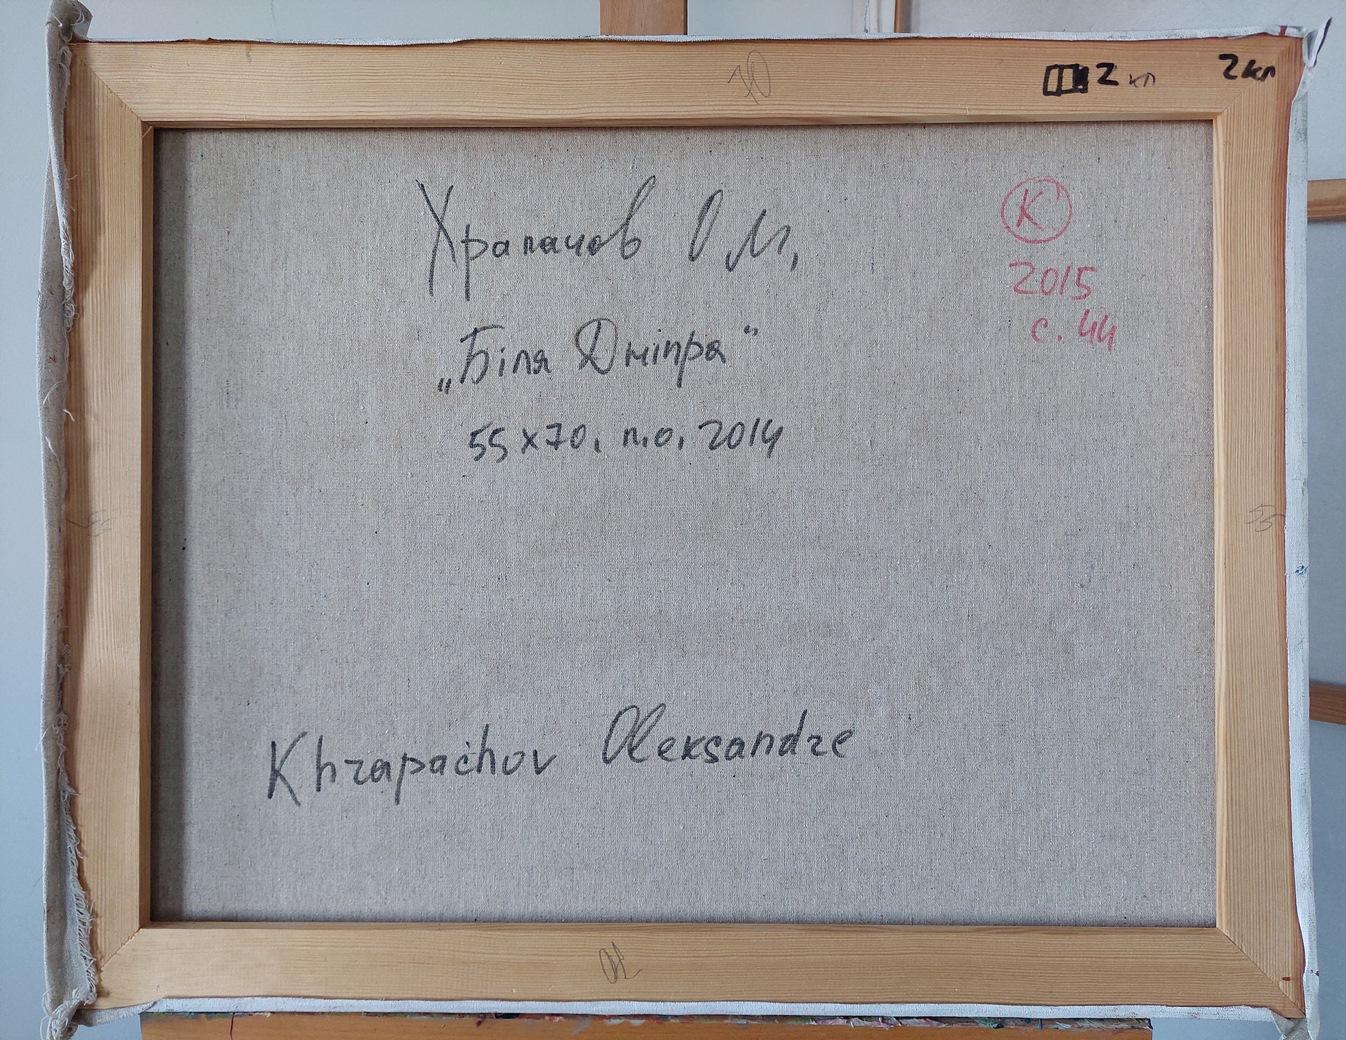 70
2 кл
2кл
Храпачов О.М,
„Біля Дніпра"
55x70, п.о, 2014
К
2015
с. 44
55
55
Khrapachov Oleksandre
70